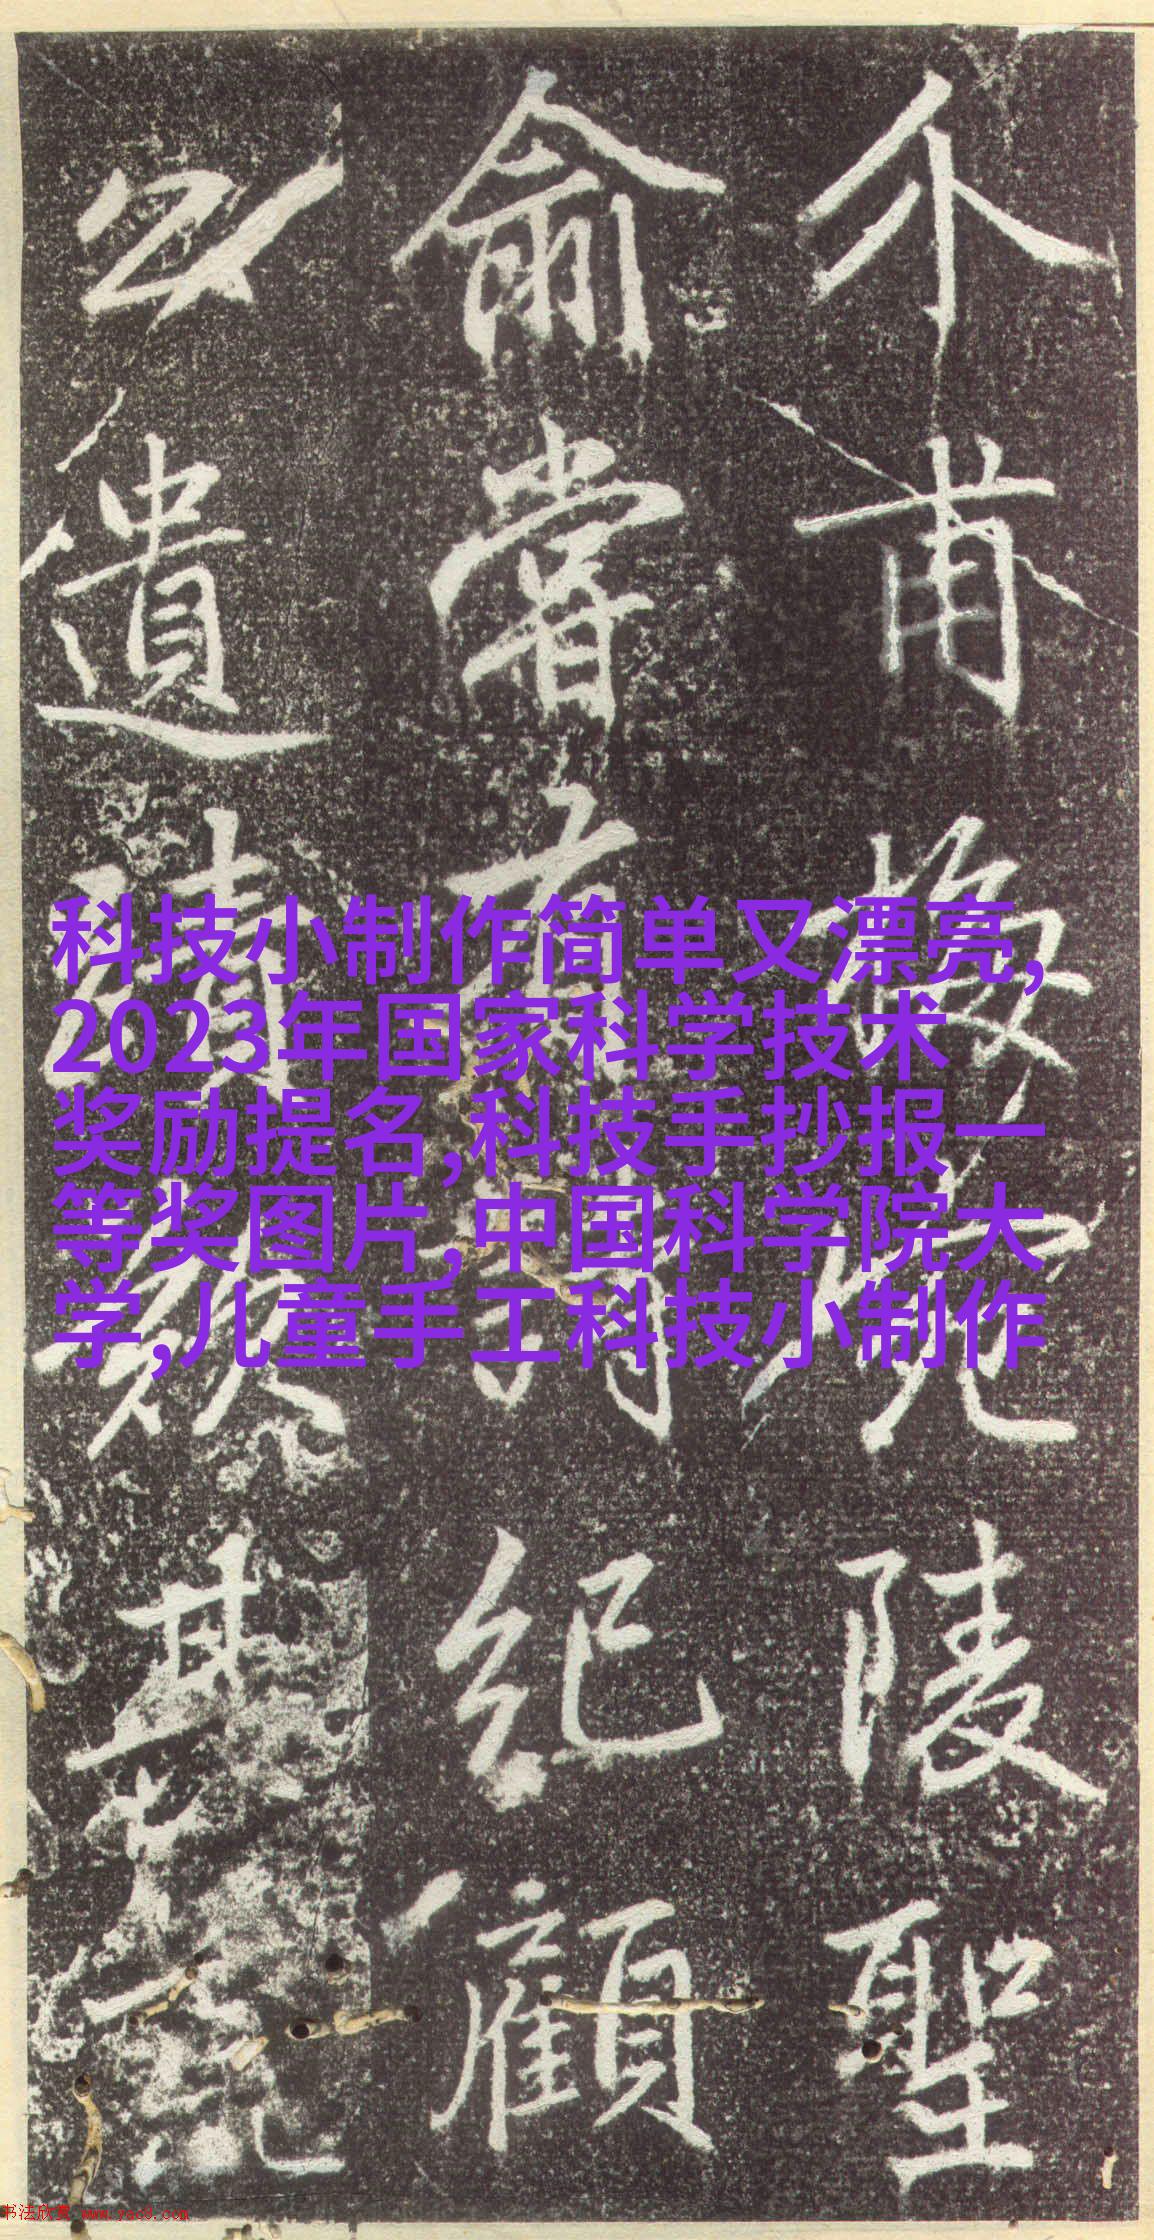 介甫陵聖
俞嘗有詩紀顧
公遺其
科技小制作简单又漂亮,
2023年国家科学技术
奖励提名,科技手抄报一
等奖图片,中国科学院大
学,儿童手工科技小制作
书法欣赏 www.yac8.com